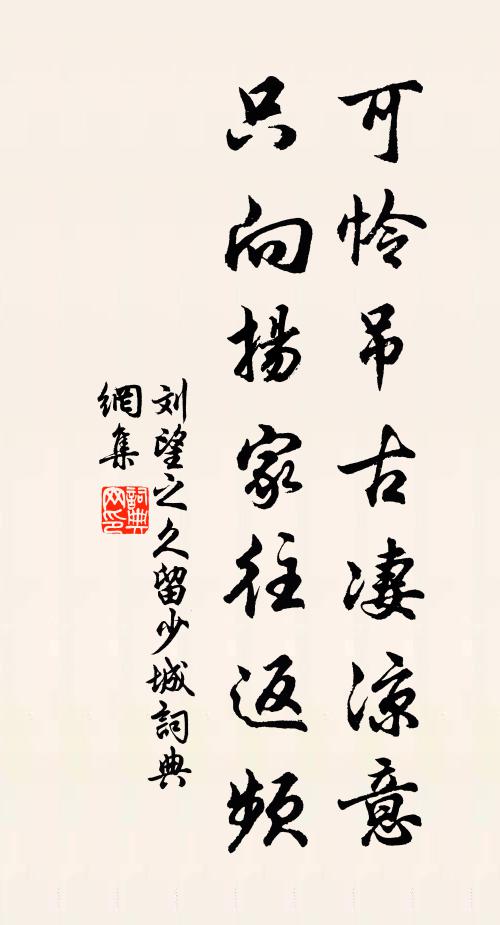 可怜吊古凄凉意
只向揚家往返频
刘望之久留少城詞典
網集
詞典
网印